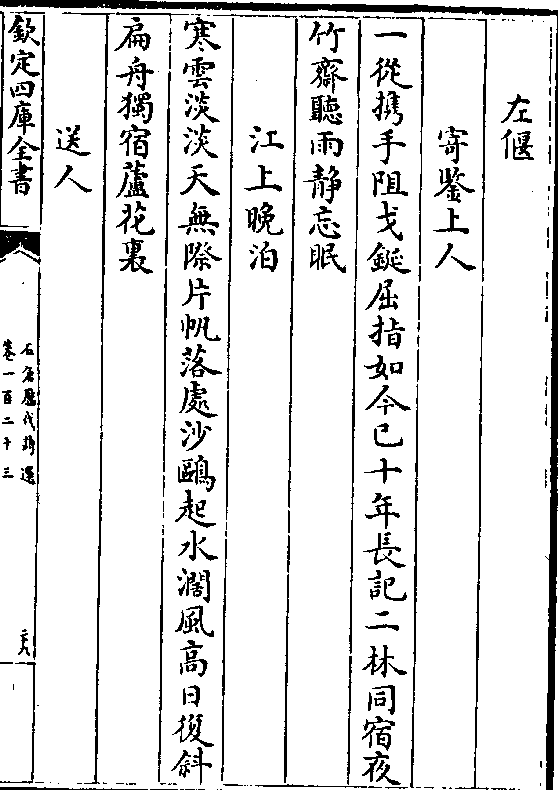 左偃
寄鑒上人
一從携手阻戈鋋屈指如今已十年長記二林同宿夜
竹齋聽雨静忘眠
江上晚泊
寒雲淡淡天無際片帆落處沙鷗起水濶風高日復斜
扁舟獨宿蘆花裏
送人
欽定四庫全書
石倉歷代詩選
卷一百二十三